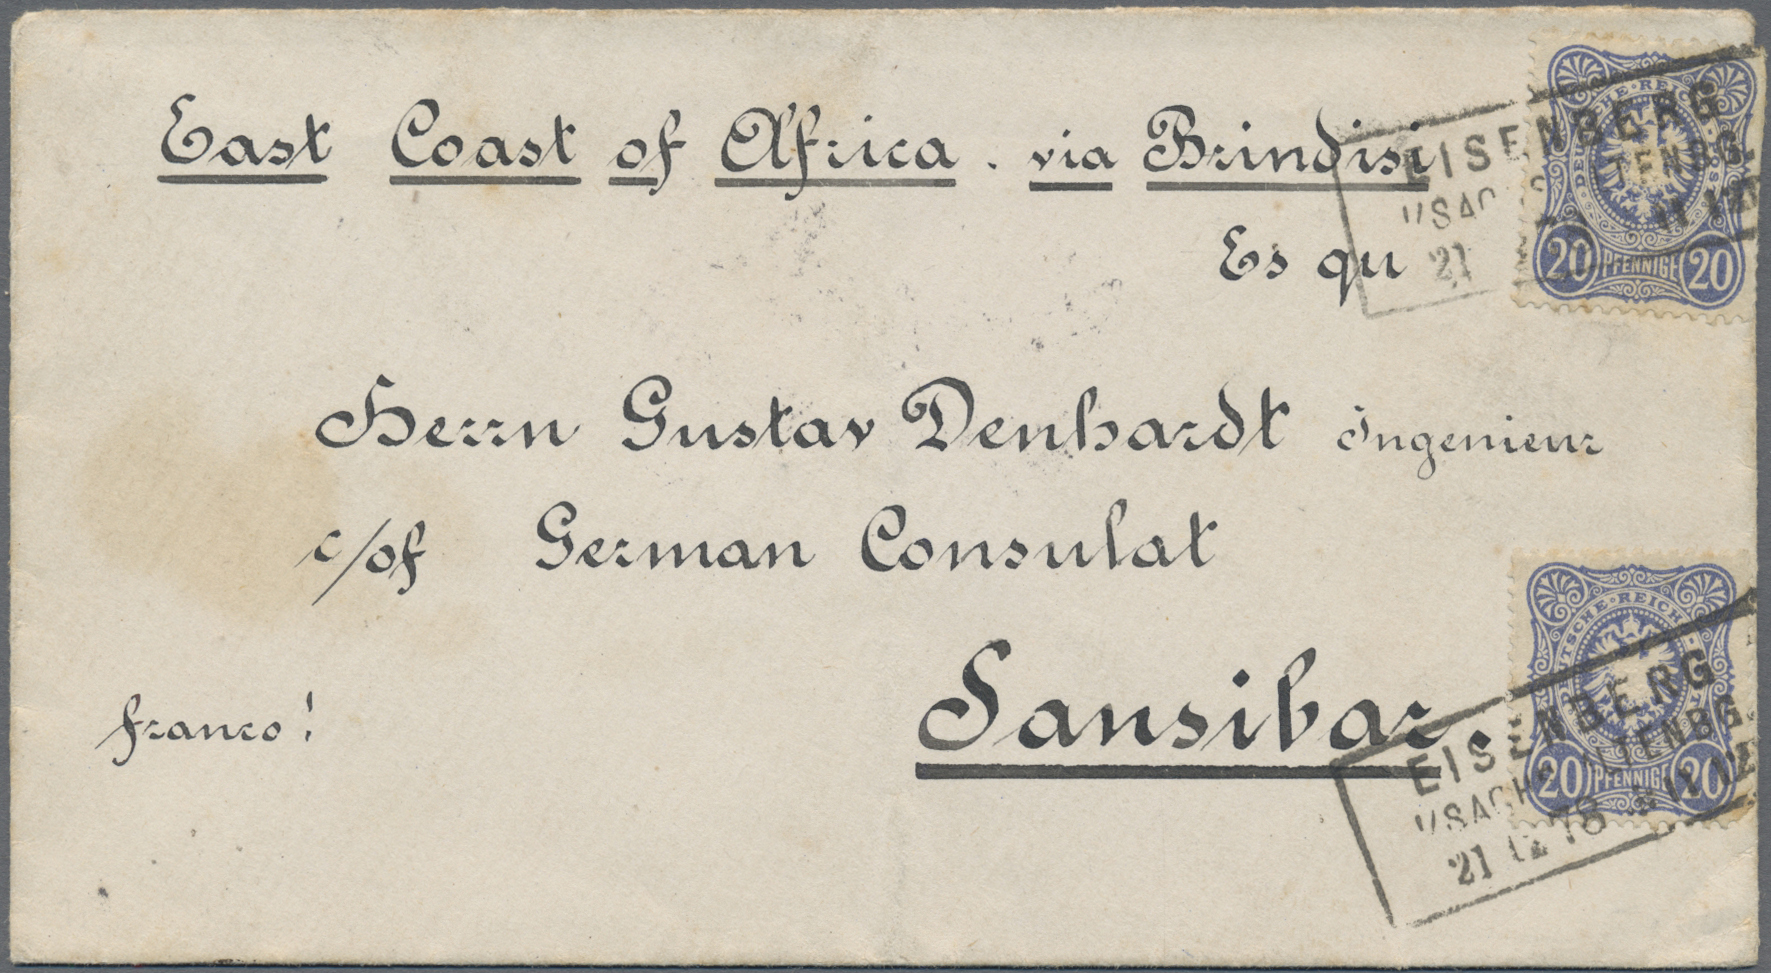 East Coast of Africa. via Brindisi
Es qu
Herrn Gustav Denhardt Ingenieur
c/of German Consulat
Sansibar.
franco!
EISENBERG
21
DEUTSCHE REICHS
20 PFENNIGE 20
EISENBERG
I/SACHS ALTENBG.
21 12 78
DEUTSCHE REICHS
20 PFENNIGE 20